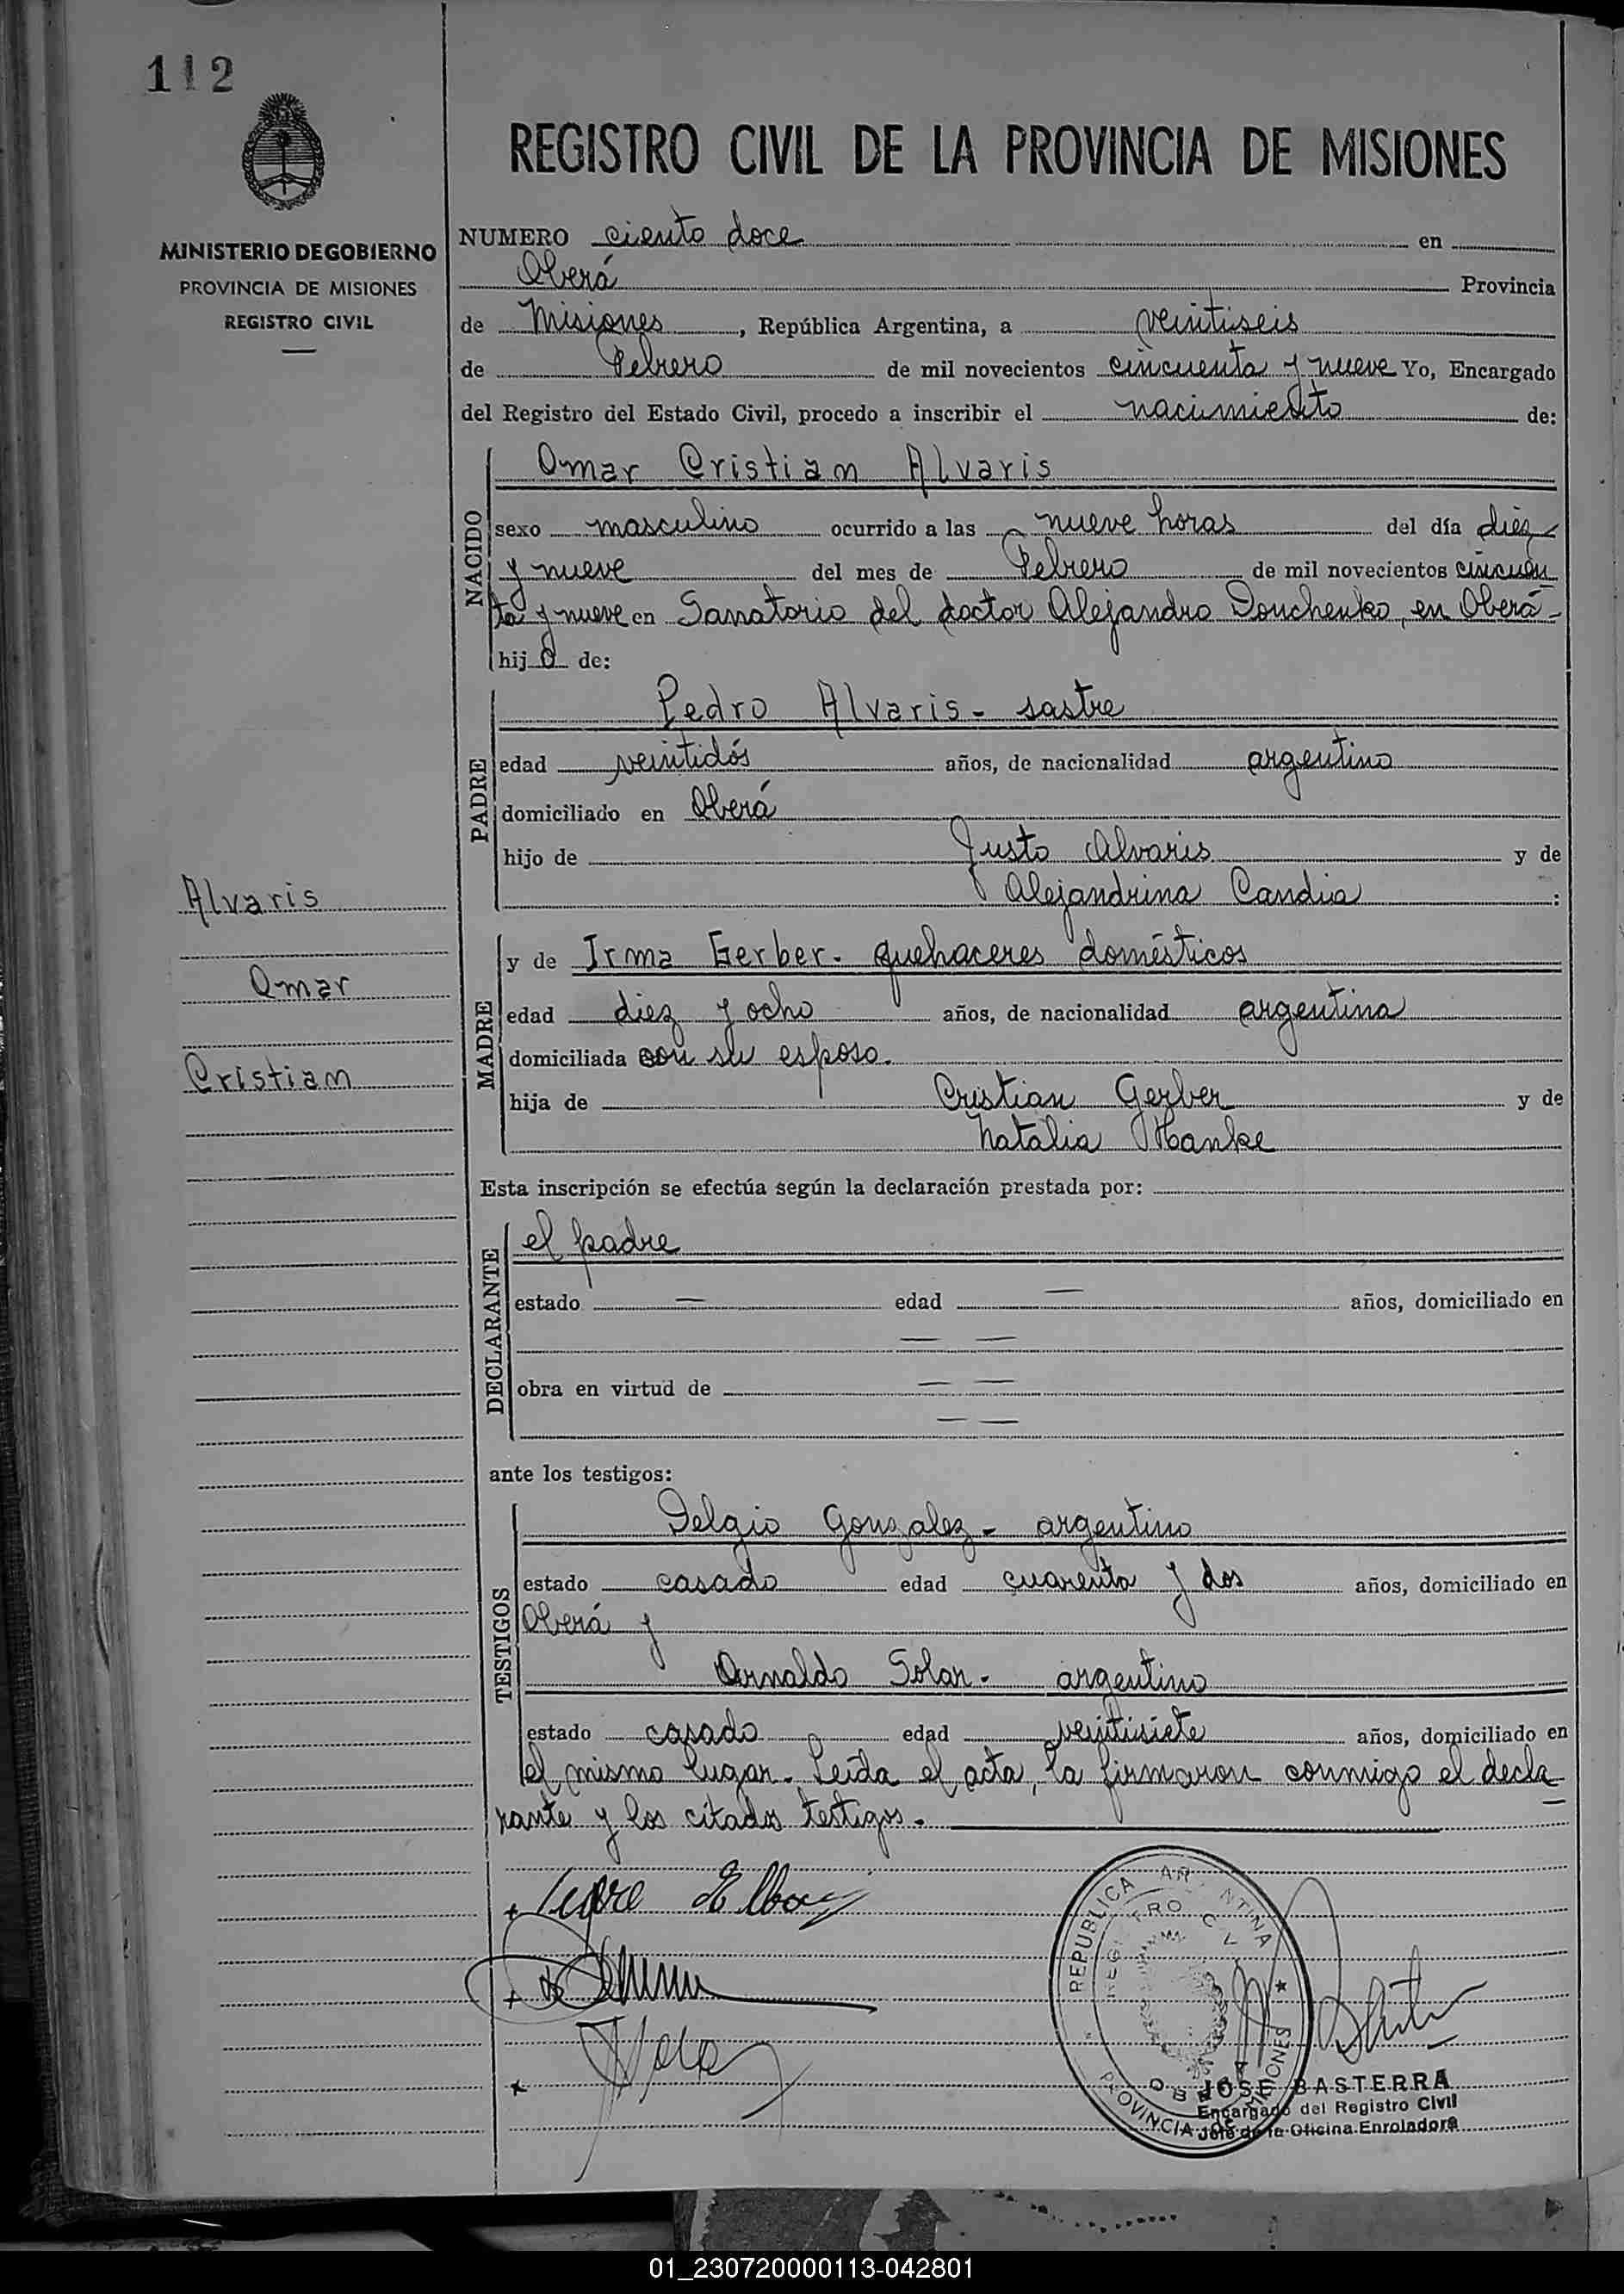 112
REGISTRO CIVIL DE LA PROVINCIA DE MISIONES
MINISTERIO DE GOBIERNO
PROVINCIA DE MISIONES
REGISTRO CIVIL
NUMERO ciento doce en
Oberá Provincia
de Misiones, República Argentina, a veintiseis
de Febrero de mil novecientos cincuenta y nueve Yo, Encargado
del Registro del Estado Civil, procedo a inscribir el nacimiento de:
NACIDO
Omar Cristian Alvaris
sexo masculino ocurrido a las nueve horas del día diez
y nueve del mes de Febrero de mil novecientos cincuen
ta y nueve en Sanatorio del doctor Alejandro en Oberá-
hijo de:
PADRE
Pedro Alvaris - sastre
edad veintidós años, de nacionalidad argentino
domiciliado en Oberá
hijo de Justo Alvaris y de
Alejandrina Candia :
Alvaris
Omar
Cristian
MADRE
y de Irma Gerber - quehaceres domésticos
edad diez y ocho años, de nacionalidad argentina
domiciliada con su esposo.
hija de Cristian Gerber y de
Natalia Hanke
Esta inscripción se efectúa según la declaración prestada por:
DECLARANTE
el padre
estado — edad — años, domiciliado en
— —
obra en virtud de — —
— —
ante los testigos:
TESTIGOS
Gonzalez - argentino
estado casado edad cuarenta y dos años, domiciliado en
Oberá y
Arnaldo Solar - argentino
estado casado edad veintisiete años, domiciliado en
el mismo lugar. Leída el acta, la firmaron conmigo el decla
rante y los citados testigos.
REPUBLICA ARGENTINA
REGISTRO CIVIL
PROVINCIA DE MISIONES
JOSE BASTERRA
Encargado del Registro Civil
Jefe de la Oficina Enroladora
01_230720000113-042801